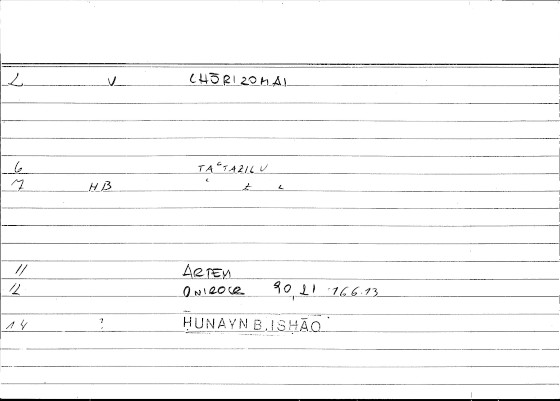 2 V CHŌRIZOMAI
6 TAʿTAZILU
7 HB
11 ARTEM
12 ONIROCR 90,21 166.13
14 ? ḤUNAYN B. ISḤĀQ